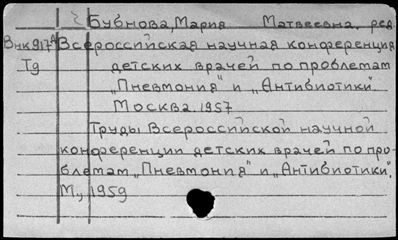 Бубнова, Мария Матвеевна. ред.
Внк917А Всероссийская научная конференция
Тд детских врачей по проблемам
„Пневмония" и „Антибиотики".
Москва. 1957
Труды Всероссийской научной
конференции детских врачей по про-
блемам „Пневмония" и „Антибиотики".
М., 1959